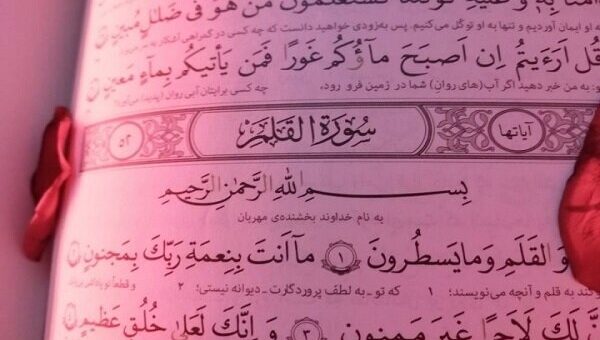 فَسَتَعلَمونَ مَن هُوَ فى ضَلٰلٍ مُبينٍ
به او ایمان آوردیم و تنها به او توکّل می‌کنیم. پس به‌زودی خواهید دانست که چه کسی در گمراهی آشکار
قُل اَرَءَيتُم اِن اَصبَحَ مآؤُكُم غَورًا فَمَن يَأتيكُم بِمآءٍ مَعينٍ
به من خبر دهید اگر آب(های روانِ) شما در زمین فرو رود، چه کسی برایتان آبی روان
آیاتها سورة القلم ۵۲
بِسمِ اللهِ الرَّحمٰنِ الرَّحيمِ
به نام خداوند بخشنده‌ی مهربان
وَالقَلَمِ وَما يَسطُرونَ ۱ مآ اَنتَ بِنِعمَةِ رَبِّكَ بِمَجنونٍ
به قلم و آنچه می‌نویسند؛ ۱ که تو ـ به لطف پروردگارت ـ دیوانه نیستی؛ ۲ و قطعاً
لَكَ لَاَجرًا غَيرَ مَمنونٍ ۳ وَ اِنَّكَ لَعَلىٰ خُلُقٍ عَظيمٍ